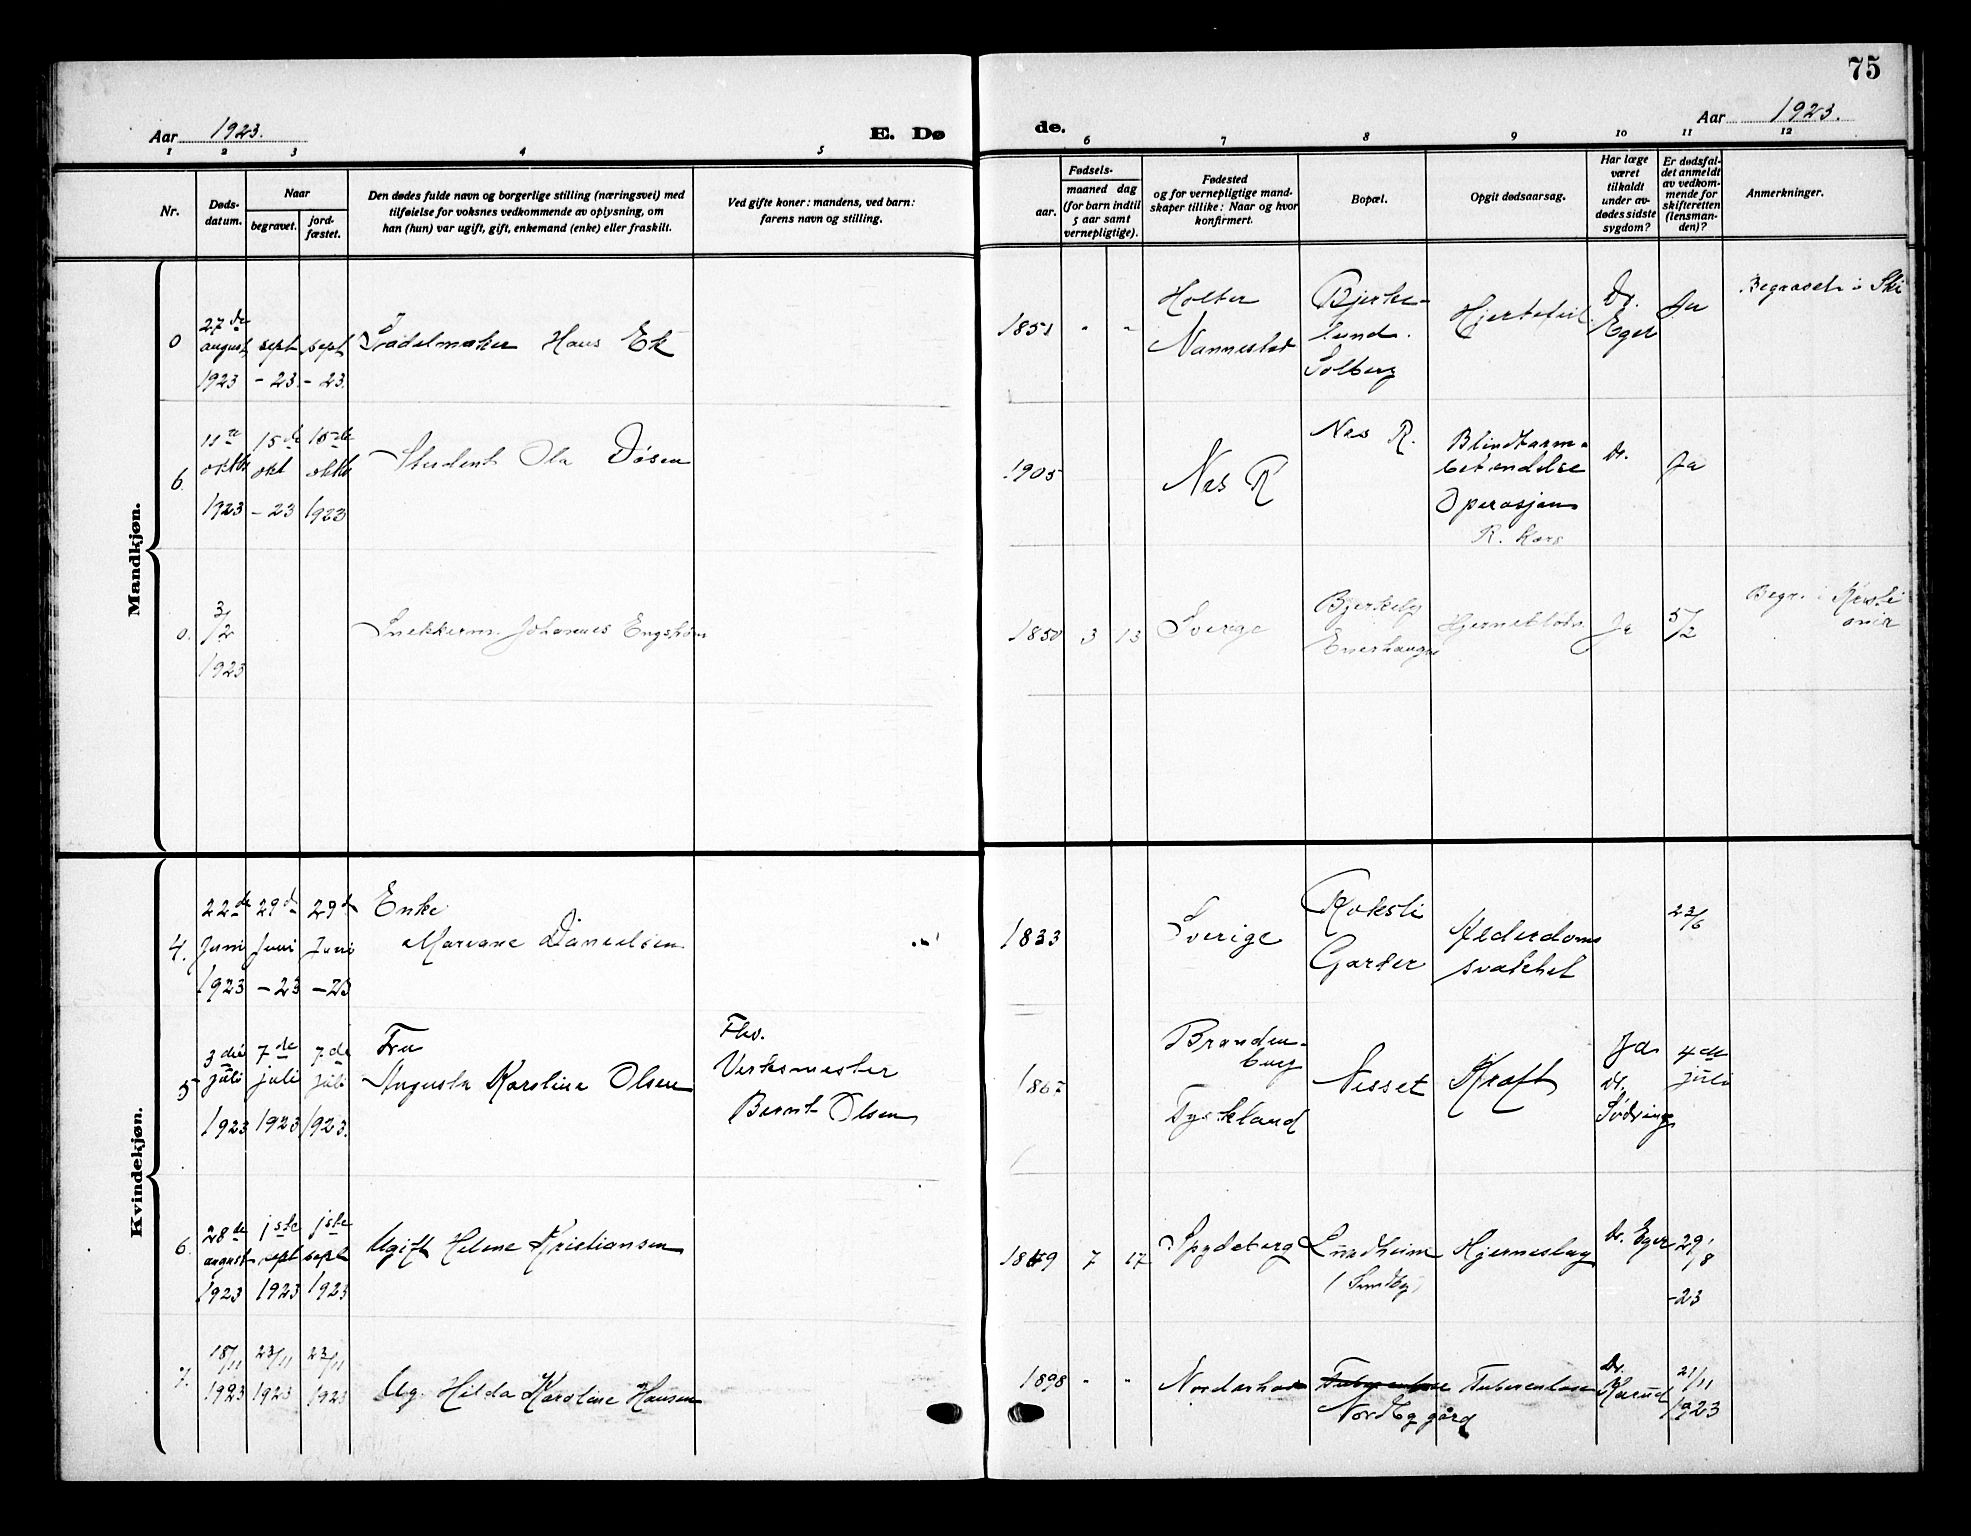 75
Aar 1923.
E. Dø
de.
Aar 1923.
1 2 3 4 5
6 7 8 9 10 11 12
Nr.
Døds-
datum.
Naar
begravet.
jord-
fæstet.
Den dødes fulde navn og borgerlige stilling (næringsvei) med
tilføielse for voksnes vedkommende av oplysning, om
han (hun) var ugift, gift, enkemand (enke) eller fraskilt.
Ved gifte koner: mandens, ved barn:
farens navn og stilling.
Fødsels-
aar.
maaned dag
(for barn indtil
5 aar samt
vernepligtige).
Fødested
og for vernepligtige mand-
skaper tillike: Naar og hvor
konfirmert.
Bopæl.
Opgit dødsaarsag.
Har læge
været
tilkaldt
under av-
dødes sidste
sygdom?
Er dødsfal-
det anmeldt
av vedkom-
mende for
skifteretten
(lensman-
den)?
Anmerkninger.
Mandkjøn.
0
27de
august
1923
sept
- 23.
sept
- 23.
Sadelmaker Hans Ek
1851 " "
Holter
Nannestad
Bjerke-
lund.
Solberg
Hjertefeil
Dr.
Eger
Ja
Begravet i Ski
6.
11te
oktbr
1923
15de
okt
- 23
15de
oktb
1923
Student Ola Døsen
1905
Nes R
Nes R.
Blindtarm-
betændelse
Operasjon
R. Kors
Dr.
Ja
0.
3/2
1923
Snekkerm. Johannes Engstrøm
1850 3 13
Sverige
Bjerkely
Enerhaugen
Hjerneblødn
Ja
5/2
Begr. i Kristi
ania
Kvindekjøn.
4.
22de
Juni
1923
29de
Juni
- 23
29de
Juni
- 23
Enke
Mariane Danielsen
1833
Sverige
Roksli
Garder
Alderdoms
svakhet
23/6
5
3die
juli
1923
7de
juli
1923
7de
juli
1923.
Fru
Augusta Karoline Olsen
Fhv.
Verksmester
Bernt Olsen
Branden-
burg
Tyskland
Nesset
Kræft
Ja
dr.
Sødring
4de
juli
6.
28de
august
1923
1ste
sept
1923
1ste
sept
1923
Ugift Helene Kristiansen
1849 7 17
Spydeberg
Lundheim
(Sundby)
Hjerneslag
Dr. Eger
29/8
-23
7.
18/11
1923
23/11
1923
23/11
1923
Ug. Hilda Karoline Hansen
1898 " "
Norderhov
Nordby gård
Tuberculose
Dr.
21/11
1923